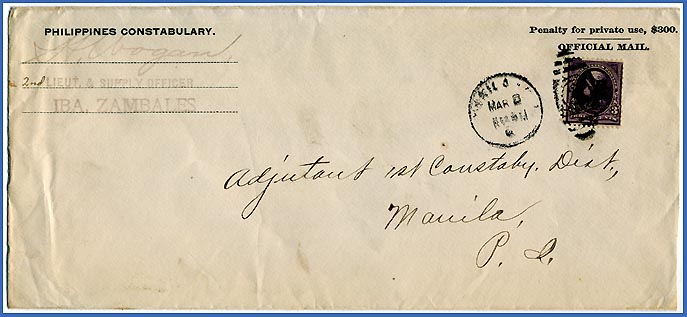 PHILIPPINES CONSTABULARY.
Penalty for private use, $300.
OFFICIAL MAIL.
2nd LIEUT. & SUPPLY OFFICER
IBA, ZAMBALES
MAR 8
Adjutant 1st Constaby. Dist.,
Manila,
P. I.